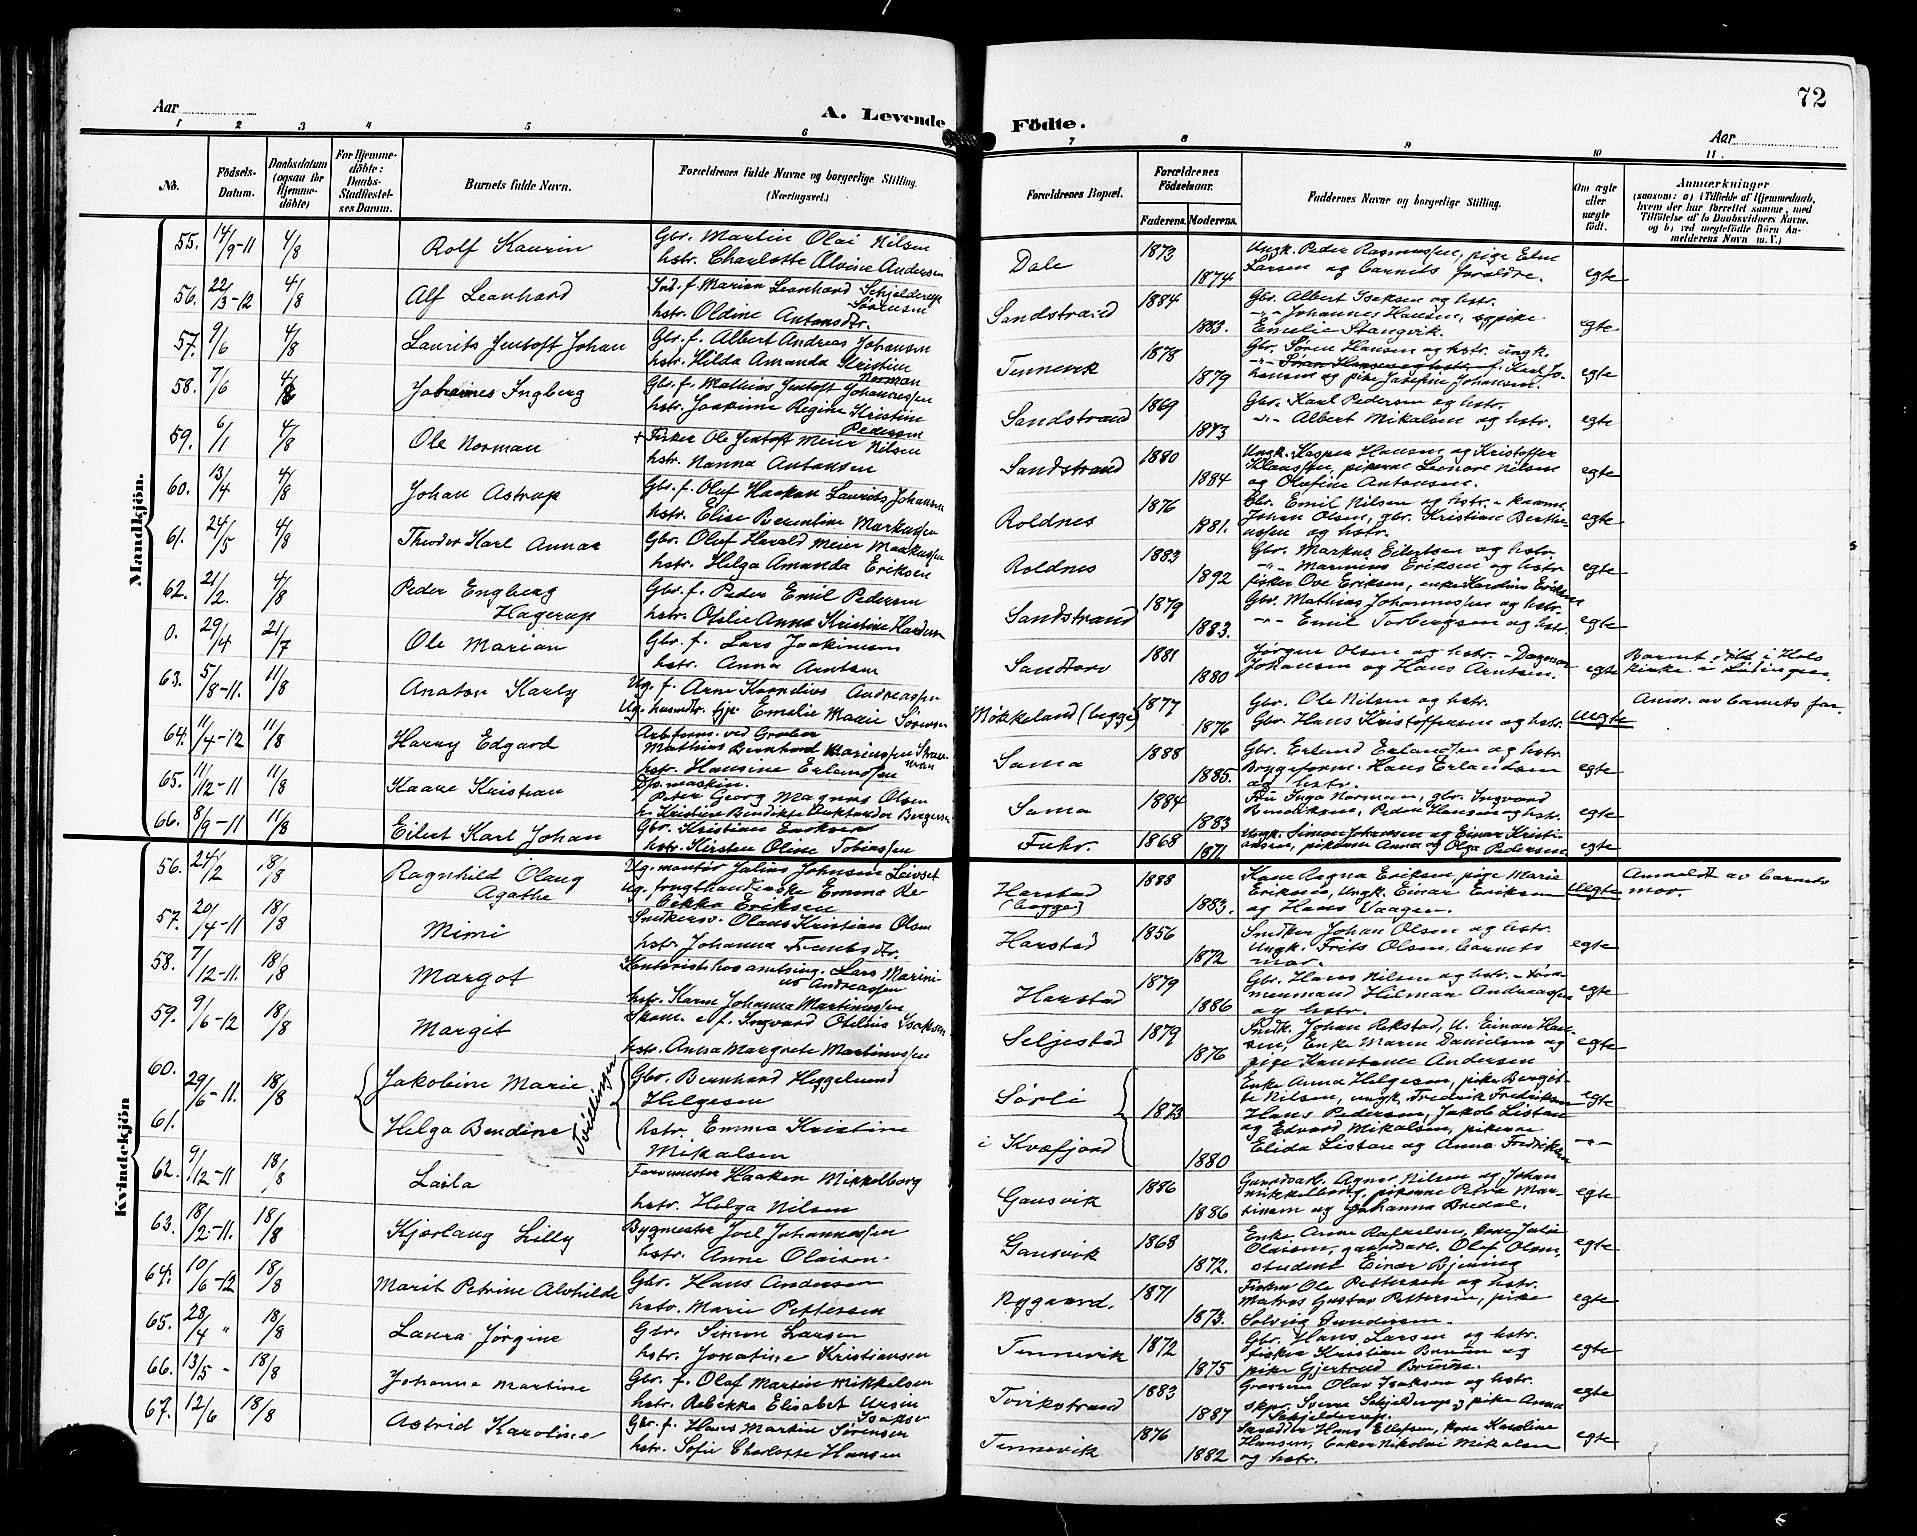 72
Aar
A. Levende
Födte.
Aar
1 2 3 4 5 6 7 8 9 10 11
No. Födsels-Datum. Daabsdatum (ogsaa for Hjemme-döbte) For Hjemme-döbte: Daabs-Stadfæstel-ses Datum. Barnets fulde Navn. Forældrenes fulde Navne og borgerlige Stilling. (Næringsvei.) Forældrenes Bopæl. Forældrenes Födselsaar. Faderens. Moderens. Faddernes Navne og borgerlige Stilling. Om ægte eller uægte födt. Anmærkninger
Mandkjön.
55. 14/9-11 4/8 Rolf Kaurin Gbr. Martin Olai Nilsen Dale 1873 Ungk. Peder Rasmussen, pige Eline
hstr. Charlotte Alvine Andersen 1874 Larsen og barnets forældre. egte
56. 22/3-12 4/8 Alf Leonhard Ind. f. Marian Leonhard Schjelderup Sandstrand 1884 Gbr. Albert Isaksen og hstr.
hstr. Oldine Antonsdtr. 1883. Johannes Hansen, og pike Emelie Stangvik. egte
57. 9/6 4/8 Laurits Jentoft Johan Gbr. f. Albert Andreas Johansen Tennevik 1878 Gbr. Søren Hansen og hstr. ungk.
hstr. Hilda Amanda Kristine Norman 1879 og pike Josefine Johansen. egte
58. 7/6 4/8 Johannes Ingberg Gbr. f. Mathias Jentoft Johannessen Sandstrand 1869 Gbr. Karl Pedersen og hstr.
hstr. Joakime Regine Kristine Pedersen 1873 -"- Albert Mikalsen og hstr. egte
59. 6/1 4/8 Ole Norman + Fisker Ole Jentoft Meier Nilsen Sandstrand 1880 Ungk. Kasper Hansen og Kristoffer
hstr. Nanna Antonsen 1884 Klaussen, pikerne Leonore Nilsen og Olafine Antonsen. egte
60. 13/4 4/8 Johan Astrup Gbr. f. Oluf Haakon Laurits Johansen Roldnes 1876 Gbr. Emil Nilsen og hstr.
hstr. Elise Berentine Markussen 1881. Johan Olsen, gbr. Kristian og hstr. egte
61. 24/5 4/8 Theodor Karl Annar Gbr. Oluf Harald Meier Markussen Roldnes 1883 Gbr. Markus Eilertsen og hstr.
hstr. Helga Amanda Eriksen 1892 -"- Marinius Eriksen og hstr. fisker Ove Eriksen, enke Eriksen egte
62. 21/2. 4/8 Peder Engberg Hagerup Gbr. f. Peder Emil Pedersen Sandstrand 1879 Gbr. Mathias Johannessen og hstr.
hstr. Otelie Anna Kristine 1883. -"- Emil Torbergsen og hstr. egte
0. 29/4 21/7 Ole Marian Gbr. f. Lars Joakimsen Sandtorv 1881 Jørgen Olsen og hstr. - Dagmar
hstr. Anna Arntsen 1880 Johansen og Hans Arntsen. egte Barnet døbt i Hols kirke i Lødingen.
63. 5/8-11. 11/8 Anaton Karly Ug. f. Arne Kornelius Andreassen Møkkeland (begge) 1877 Gbr. Ole Nilsen og hstr. Anm. av barnets far.
Ug. Emelie Marie Sørensen 1876 Gbr. Hans Kristoffersen og hstr. uegte
64. 11/4-12 11/8 Harry Edgard Arbform. ved Gruber Mathias Bernhard Marinussen Sama 1888 Gbr. Erlend Erlandsen og hstr.
hstr. Hansine Erlandsen 1885. Bryggeform. Hans Erlandsen og hstr. egte
65. 11/12-11 11/8 Kaare Kristian Peter Georg Magnus Olsen Sama 1884 Fru Inga Norman, gbr. Ingvard
1883 Benediksen, Peder Hansen og hstr. egte
66. 8/9-11 11/8 Eilert Karl Johan Gbr. Kristian Eriksen Fuhr. 1868 Ungk. Simon Johansen og Einar Kristiansen,
hstr. Kirsten Oline Tobiassen 1871 pikerne Anna og Olga Pedersen egte
Kvindekjön
56. 24/2 18/8 Ragnhild Olaug Agathe Ug. montør Julius Johnsen Leivset Harstad (begge) 1888 Kone Ragna Eriksen, pige Marie Anmeldt av barnets mor.
Ug. Emma Rebekka Eriksen 1883. Eriksen, Ungk. Einar Eriksen og Hans Vaagen. uegte
57. 20/4-11 18/8 Mimi Snedkersv. Olaus Kristian Olsen Harstad 1856 Snedker Johan Olsen og hstr.
hstr. Johanna 1872 Ungk. Frits Olsen, barnets mor. egte
58. 7/12-11. 18/8 Margot Kontorist hos amtsing. Lars Marinius Andreassen Harstad 1879 Gbr. Hans Nilsen og hstr.
hstr. Karen Johanna Martinussen 1886 Hilmar Andreassen og hstr. egte
59. 9/6-12 18/8 Margit Skom. e. f. Ingvard Otelius Isaksen Seljestad 1879 Snedk. Johan Rekstad, U. Einar Hansen,
hstr. Anna Margrete Martinussen 1876 Enke Maren Danielsen og pige Konstanse Andersen egte
60. 29/6-11. 18/8 Jakobine Marie Tvillinger Gbr. Bernhard Heggelund Helgesen Sørli 1873 Enke Anna Helgesen, pike Bergitte Nilsen, ungk. Fredrik Fredriksen egte
61. Helga Bendine hstr. Emma Kristine Mikalsen i Kvæfjord 1880 Hans Pedersen, Jakob Listau og Edvard Mikalsen, pikerne Elida Listau og Anna Fredriksen -"-
62. 9/12-11 18/8 Laila Farvemester Haaken Mikkelborg Gansvik 1886 Gaardsarb. Agnar Nilsen og Johan
hstr. Helga Nilsen 1886 Mikkelborg, pikerne Petra Martinsen og Johanna Bredal. egte
63. 18/2-11. 18/8 Kjørlaug Lilly Bygmester Joel Johannessen Gansvik 1868 Enke Anne Rafaelsen, kone Julie
hstr. Anne Olaisen. 1872. Olaisen, gaardsarb. Olaf Olsen, student Einar Bjerring egte
64. 10/6-12 18/8 Marit Petrine Alvhilde Gbr. Hans Andersen Nygaard. 1871 Fisker Ole Pettersen og hstr.
hstr. Marie Pettersen 1873. Matros Gustav Pettersen, pike Solvig Gundersen. egte
65. 28/4 " 18/8 Laura Jørgine Gbr. Simon Larsen Tennevik 1872 Gbr. Hans Larsen og hstr.
hstr. Jonatine Kristiansen 1875 fisker Kristian Bruun og pike Gjertrud Bruun. egte
66. 13/5 - 18/8 Johanna Martine Gbr. f. Olaf Martin Mikkelsen Tovikstrand 1883 Olav Isaksen og hstr.
hstr. Rebekka Elisabet Ursin Isaksen 1887 skpr. Sverre Schjelderup, pike Anna Schjelderup. egte
67. 12/6 18/8 Astrid Karoline Gbr. f. Hans Martin Sørensen Tennevik 1876 Hans Ellefsen, kone Karoline
hstr. Sofie Charlotte Hansen 1882 Hansen, enkem. Nikolai Mikalsen og hstr. egte